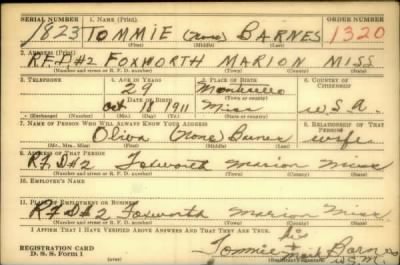 SERIAL NUMBER 1. NAME (Print) ORDER NUMBER
1823 TOMMIE (None) BARNES 1320
(First) (Middle) (Last)
2. ADDRESS (Print)
R.F.D #2 FOXWORTH MARION MISS
(Number and street or R. F. D. number) (Town) (County) (State)
3. TELEPHONE 4. AGE IN YEARS 5. PLACE OF BIRTH 6. COUNTRY OF CITIZENSHIP
29 Monticello
DATE OF BIRTH (Town or county)
Oct 18 1911 Miss U.S.A.
(Exchange) (Number) (Mo.) (Day) (Yr.) (State or country)
7. NAME OF PERSON WHO WILL ALWAYS KNOW YOUR ADDRESS 8. RELATIONSHIP OF THAT PERSON
Oliva (None) Barnes wife
(Mr., Mrs., Miss) (First) (Middle) (Last)
9. ADDRESS OF THAT PERSON
R.F.D#2 Foxworth Marion Miss
(Number and street or R. F. D. number) (Town) (County) (State)
10. EMPLOYER'S NAME
11. PLACE OF EMPLOYMENT OR BUSINESS
R.F.D#2 Foxworth Marion Miss
(Number and street or R. F. D. number) (Town) (County) (State)
I AFFIRM THAT I HAVE VERIFIED ABOVE ANSWERS AND THAT THEY ARE TRUE.
his
REGISTRATION CARD Tommie + Barnes
D. S. S. Form 1 mark
(Registrant's signature)